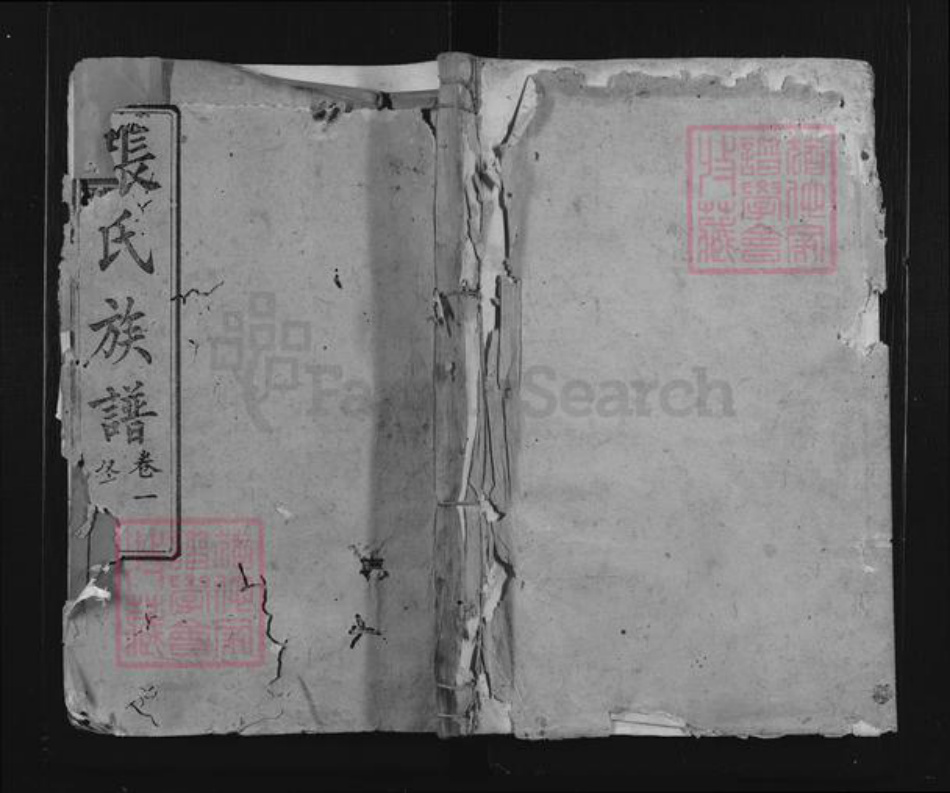 裴氏族譜
卷一
猶他家
譜學會
收藏
FamilySearch
猶他家
譜學會
收藏